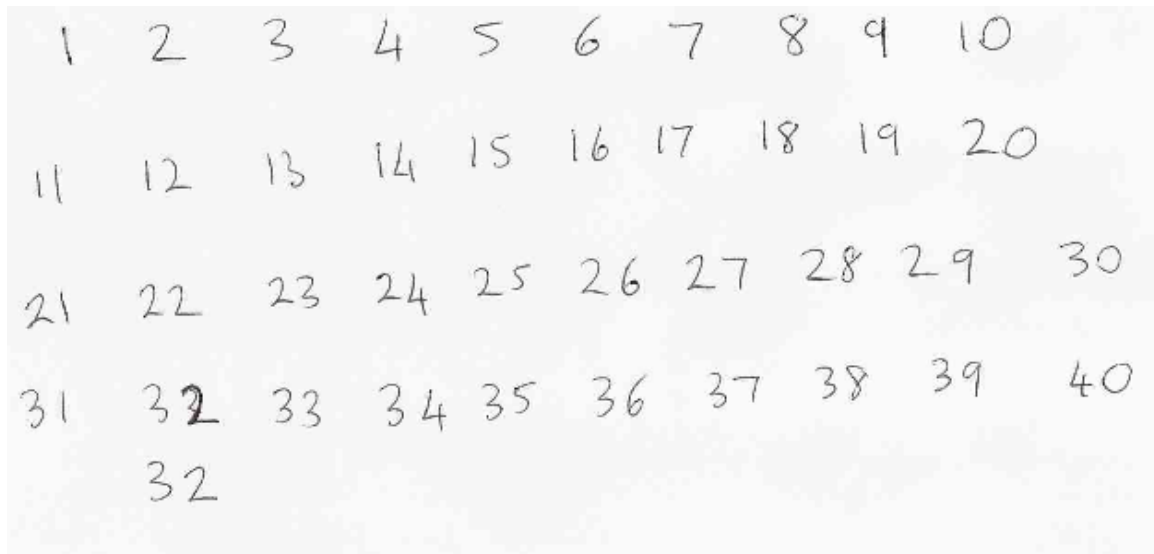 1 2 3 4 5 6 7 8 9 10
11 12 13 14 15 16 17 18 19 20
21 22 23 24 25 26 27 28 29 30
31 32 33 34 35 36 37 38 39 40
32